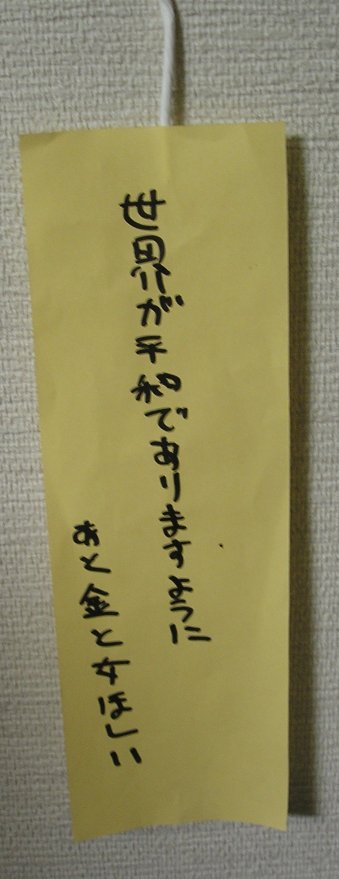 世界が平和でありますように
あと金と女ほしい